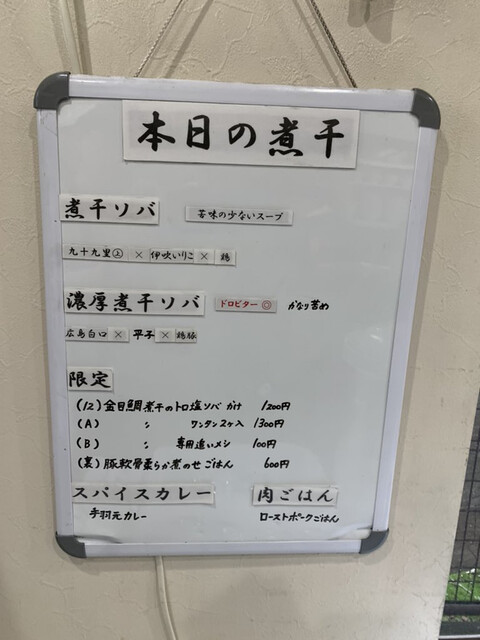 本日の煮干
煮干ソバ 苦味の少ないスープ
九十九里㊤ × 伊吹いりこ × 鶏
濃厚煮干ソバ ドロビター◎ かなり苦め
広島白口 × 平子 × 鶏豚
限定
(12) 金目鯛煮干のトロ塩ソバ かけ 1200円
(A) 〃 ワンタン2ケ入 1300円
(B) 〃 専用追いメシ 100円
(裏) 豚軟骨柔らか煮のせごはん 600円
スパイスカレー 肉ごはん
手羽元カレー ローストポークごはん